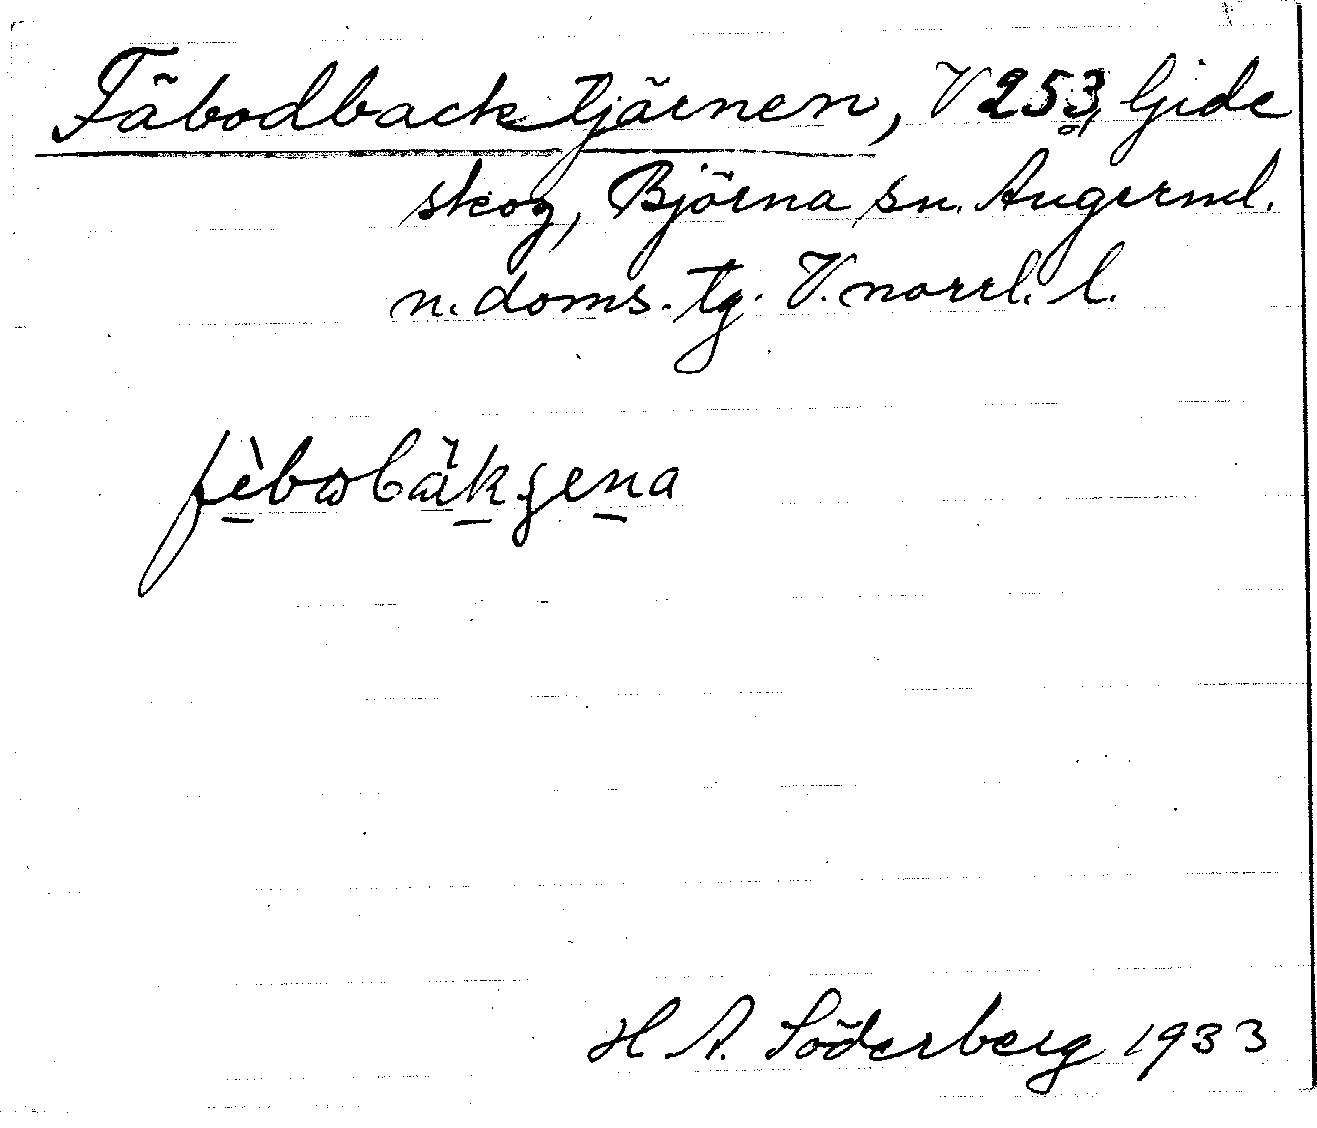 Fäbodbacktjärnen, V 253, Gide
skog, Björna sn. Ångerml.
n. doms. tg. V. norrl. l.
H A. Söderberg 1933